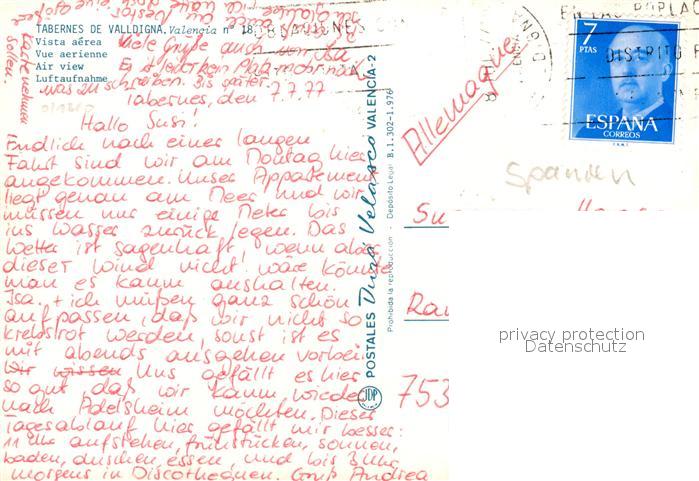 TABERNES DE VALLDIGNA. Valencia n° 18
Vista aérea
Vue aerienne
Air view
Luftaufnahme
Viele Grüße auch von Isa
Es ist leider kein Platz mehr noch
was zu schreiben. Bis später
Tabernes, den 7.7.77
Hallo Susi!
Endlich nach einer langen
Fahrt sind wir am Montag hier
angekommen. Unser Appartement
liegt genau am Meer und wir
müssen nur einige Meter bis
ins Wasser zurück legen. Das
Wetter ist sagenhaft! wenn aber
dieser Wind nicht wäre könnte
man es kaum aushalten.
Isa. + ich müßen ganz schön
aufpassen, daß wir nicht so
krebsrot werden, sonst ist es
mit abends ausgehen vorbei.
Wir wissen Uns gefällt es hier
so gut, daß wir kaum wieder
nach Adelsheim möchten. Dieser
Tagesablauf hier gefällt mir besser:
11 Uhr aufstehen, frühstücken, sonnen,
baden, duschen, essen, und bis 3 Uhr
morgens in Discothequen. Gruß Andrea
POSTALES Durá Velasco VALENCIA-2
JDP
Prohibida la reproducción - Depósito Legal B.1.302-1.976
Allemagne
Spanien
Su
Ra
753
7
PTAS
ESPAÑA
CORREOS
F.N.M.T.
EN LAS POBLAC
DISTRITO
privacy protection
Datenschutz